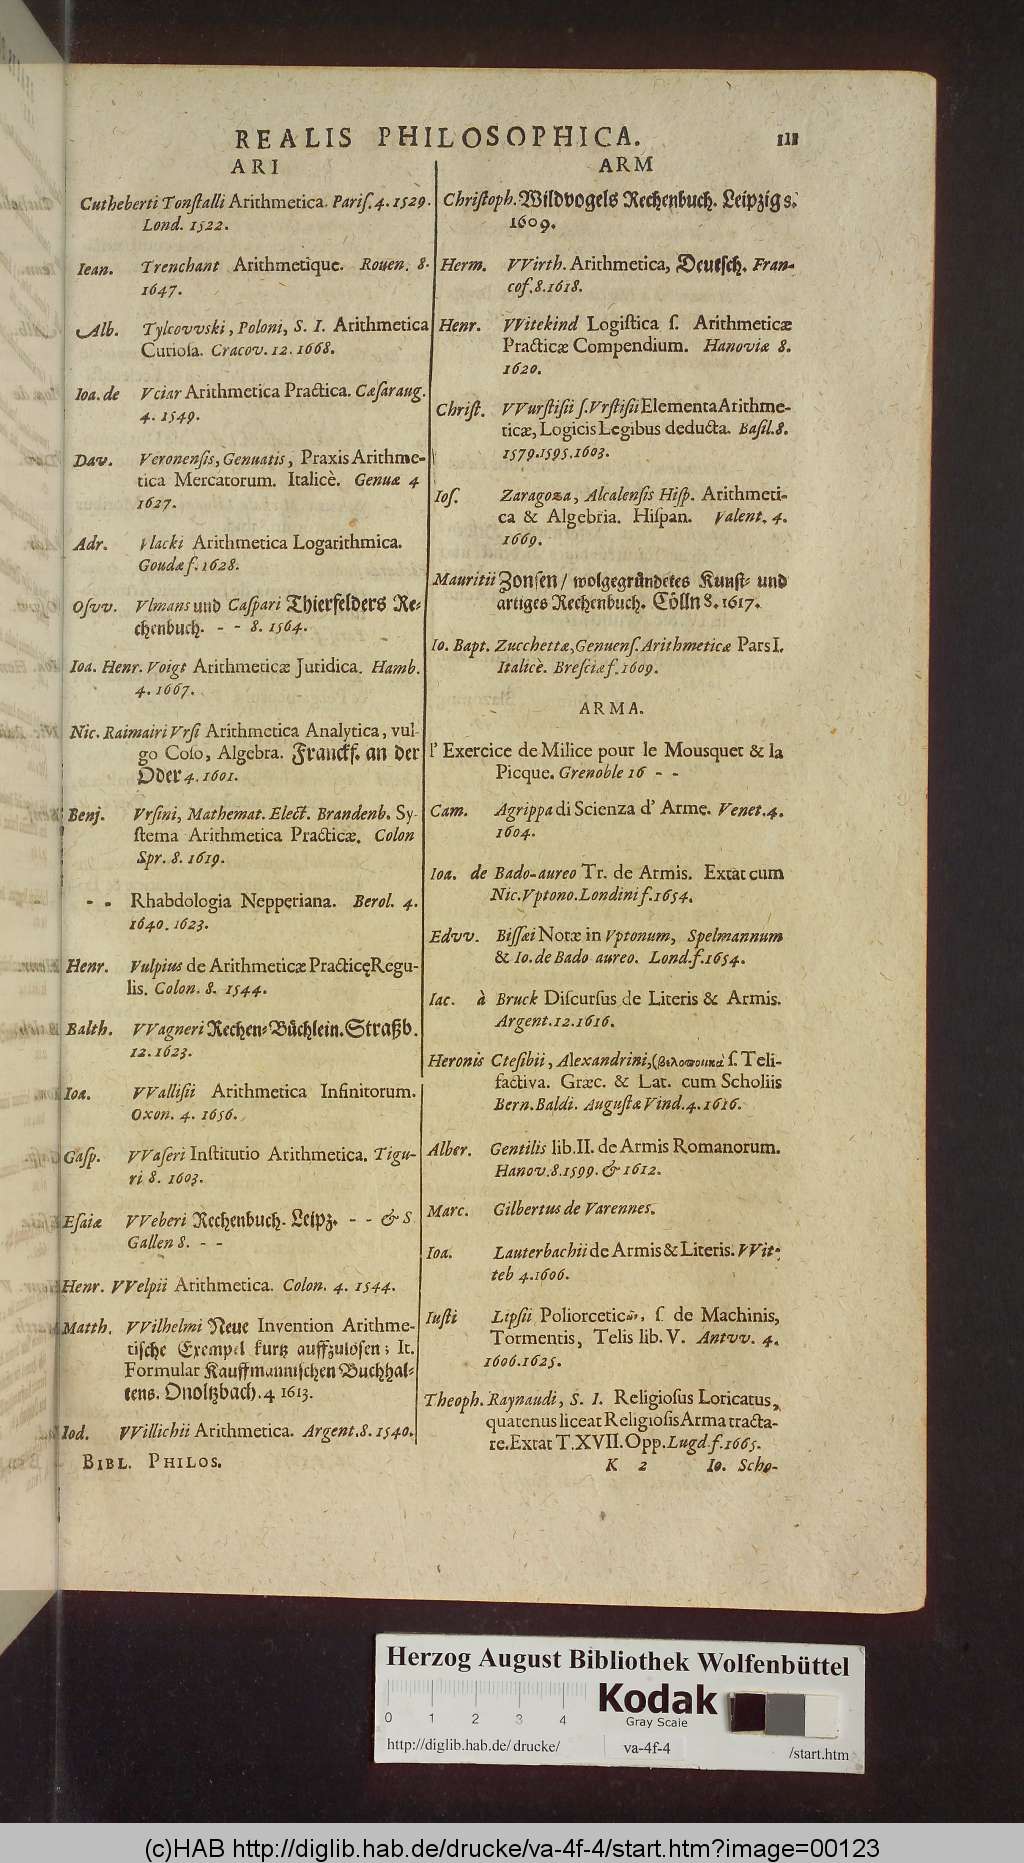 REALIS PHILOSOPHICA. 111
ARI
Cutheberti Tonſtalli Arithmetica. Pariſ. 4. 1529.
Lond. 1522.
Iean. Trenchant Arithmetique. Rouen. 8.
1647.
Alb. Tylcovvski, Poloni, S. I. Arithmetica
Curioſa. Cracov. 12. 1668.
Ioa. de Vciar Arithmetica Practica. Cæſaraug.
4. 1549.
Dav. Veronenſis, Genuatis, Praxis Arithme-
tica Mercatorum. Italicè. Genuæ 4
1627.
Adr. Vlacki Arithmetica Logarithmica.
Goudæ f. 1628.
Oſvv. Vlmans und Caſpari Thierfelders Re-
chenbuch. - - 8. 1564.
Ioa. Henr. Voigt Arithmeticæ Juridica. Hamb.
4. 1667.
Nic. Raimairi Vrſi Arithmetica Analytica, vul-
go Coſo, Algebra. Franckf. an der
Oder 4. 1601.
Benj. Vrſini, Mathemat. Elect. Brandenb. Sy-
ſtema Arithmetica Practicæ. Colon
Spr. 8. 1619.
- - Rhabdologia Neppęriana. Berol. 4.
1640. 1623.
Henr. Vulpius de Arithmeticæ Practicę Regu-
lis. Colon. 8. 1544.
Balth. VVagneri Rechen-Büchlein. Straßb.
12. 1623.
Ioa. VValliſii Arithmetica Infinitorum.
Oxon. 4. 1656.
Gaſp. VVaſeri Inſtitutio Arithmetica. Tigu-
ri 8. 1603.
Eſaiæ VVeberi Rechenbuch. Leipz. - - & S
Gallen 8. - -
Henr. VVelpii Arithmetica. Colon. 4. 1544.
Matth. VVilhelmi Neue Invention Arithme-
tiſche Exempel kurtz auffzulöſen; It.
Formular Kauffmanniſchen Buchhal-
tens. Onoltzbach. 4 1613.
Iod. VVillichii Arithmetica. Argent. 8. 1540.
BIBL. PHILOS.
ARM
Chriſtoph. Wildvogels Rechenbuch. Leipzig 8.
1609.
Herm. VVirth. Arithmetica, Deutſch. Fran-
cof. 8. 1618.
Henr. VVitekind Logiſtica ſ. Arithmeticæ
Practicæ Compendium. Hanoviæ 8.
1620.
Chriſt. VVurſtiſii ſ. Vrſtiſii Elementa Arithme-
ticæ, Logicis Legibus deducta. Baſil. 8.
1579. 1595. 1603.
Ioſ. Zaragoza, Alcalenſis Hiſp. Arithmeti-
ca & Algebria. Hiſpan. Valent. 4.
1669.
Mauritii Zonſen / wolgegründetes Kunſt- und
artiges Rechenbuch. Cölln 8. 1617.
Io. Bapt. Zucchettæ, Genuenſ. Arithmeticæ Pars I.
Italicè. Breſciæ f. 1609.
ARMA.
l' Exercice de Milice pour le Mousquet & la
Picque. Grenoble 16 - -
Cam. Agrippa di Scienza d' Arme. Venet. 4.
1604.
Ioa. de Bado-aureo Tr. de Armis. Extat cum
Nic. Vptono. Londini f. 1654.
Edvv. Biſſæi Notæ in Vptonum, Spelmannum
& Io. de Bado aureo. Lond. f. 1654.
Iac. à Bruck Diſcurſus de Literis & Armis.
Argent. 12. 1616.
Heronis Cteſibii, Alexandrini, βελοποιικὰ ſ. Teli-
factiva. Græc. & Lat. cum Scholiis
Bern. Baldi. Auguſtæ Vind. 4. 1616.
Alber. Gentilis lib. II. de Armis Romanorum.
Hanov. 8. 1599. & 1612.
Marc. Gilbertus de Varennes.
Ioa. Lauterbachii de Armis & Literis. VVit-
teb 4. 1606.
Iuſti Lipſii Poliorceticῶν, ſ de Machinis,
Tormentis, Telis lib. V. Antvv. 4.
1606. 1625.
Theoph. Raynaudi, S. I. Religioſus Loricatus,
quatenus liceat Religioſis Arma tracta-
re. Extat T. XVII. Opp. Lugd. f. 1665.
K 2 Io. Scho-
Herzog August Bibliothek Wolfenbüttel
0 1 2 3 4
Kodak
Gray Scale
http://diglib.hab.de/drucke/ va-4f-4 /start.htm
(c)HAB http://diglib.hab.de/drucke/va-4f-4/start.htm?image=00123